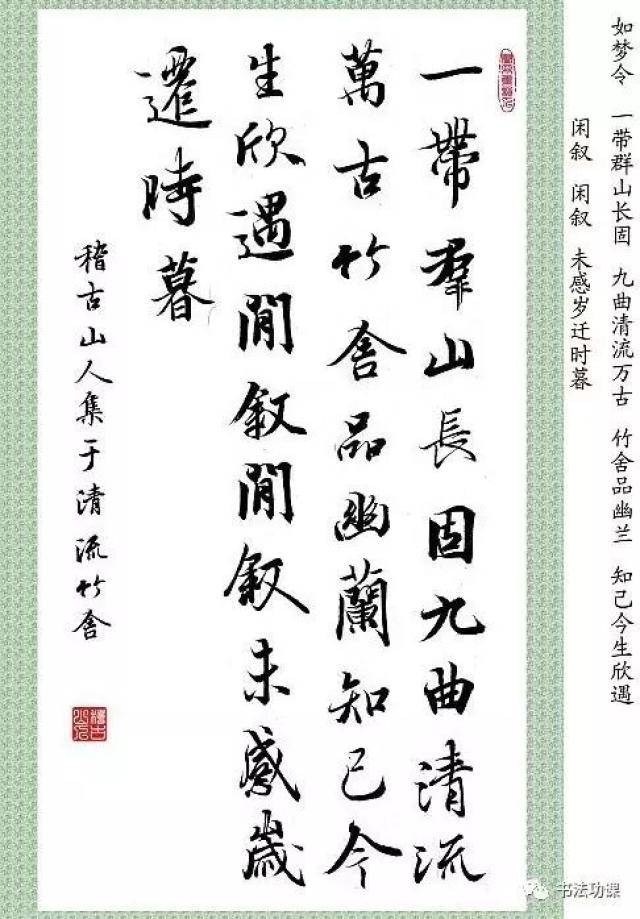 如梦令　一带群山长固　九曲清流万古　竹舍品幽兰　知己今生欣遇
闲叙　闲叙　未感岁迁时暮
一帶羣山長固九曲清流
萬古竹舍品幽蘭知己今
生欣遇閒敘閒敘未感歲
遷時暮
稽古山人集于清流竹舍
稽古山人
书法功课